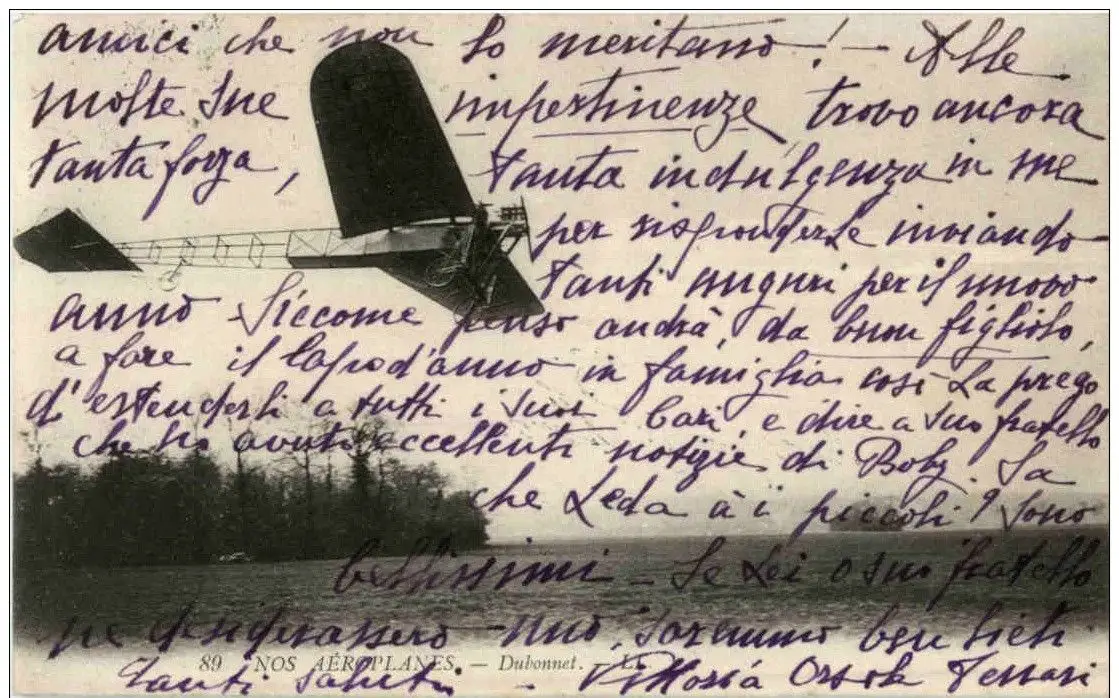 amici che non lo meritano! – Alle
molte sue impertinenze trovo ancora
tanta forza, tanta indulgenza in me
per risponderle inviando
tanti auguri per il nuovo
anno. Siccome penso andrà, da buon figliolo,
a fare il Capo d'anno in famiglia così La prego
d'estenderli a tutti i suoi Cari, e dire a suo fratello
che ho avuto eccellenti notizie di Boby. Sa
che Leda à i piccoli? Sono
bellissimi – Se Lei o suo fratello
ne desiderassero uno, saremmo ben lieti
89 NOS AÉROPLANES. — Dubonnet. LL
Tanti saluti – Orsola Ferrari